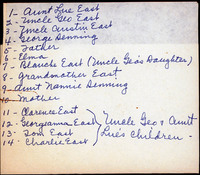 1- Aunt Lue East
2- Uncle Geo East
3- Uncle Austin East
4- George Denning
5- Father
6- Elma
7- Blanche East (Uncle Geo's Daughter)
8- Grandmother East
9- Aunt Nannie Denning
10- Mother
11- Clarence East
12- Georgeanna East
13- Tom East
14- Charlie East
Uncle Geo & Aunt
Lue's Children -